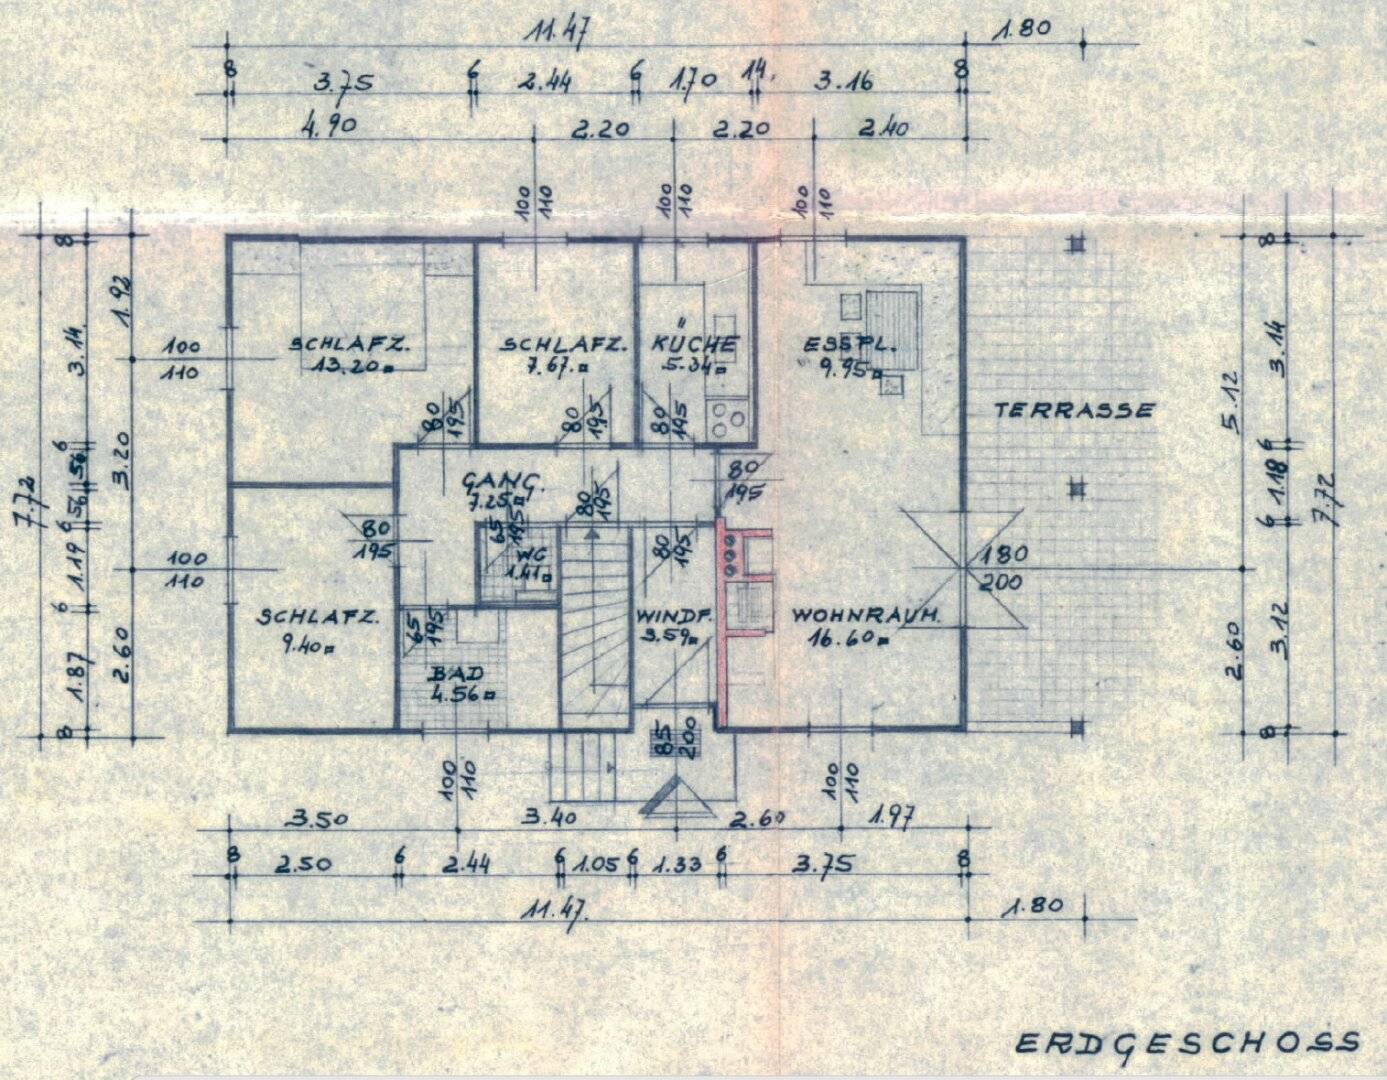 11.47 1.80
8 3.75 6 2.44 6 1.70 14. 3.16 8
4.90 2.20 2.20 2.40
100 110
100 110
100 110
8 3.14. 6 56 56 6 1.19 6 1.87 8
1.92 3.20 2.60
7.72
100
110
100
110
SCHLAFZ.
13.20
SCHLAFZ.
7.67.
KÜCHE
5.34
ESSPL.
9.95
TERRASSE
80 195
80 195
80 195
GANG.
7.25
80
195
80
195
80 195
65 195
WC
1.41
80 195
SCHLAFZ.
9.40
65 195
BAD
4.56
WINDF.
3.59
WOHNRAUM.
16.60
180
200
85 200
8 3.14 6 1.18 6 3.12 8
5.12 2.60
7.72
100 110
100 110
3.50 3.40 2.60 1.97
8 2.50 6 2.44 6 1.05 6 1.33 6 3.75 8
11.47. 1.80
ERDGESCHOSS